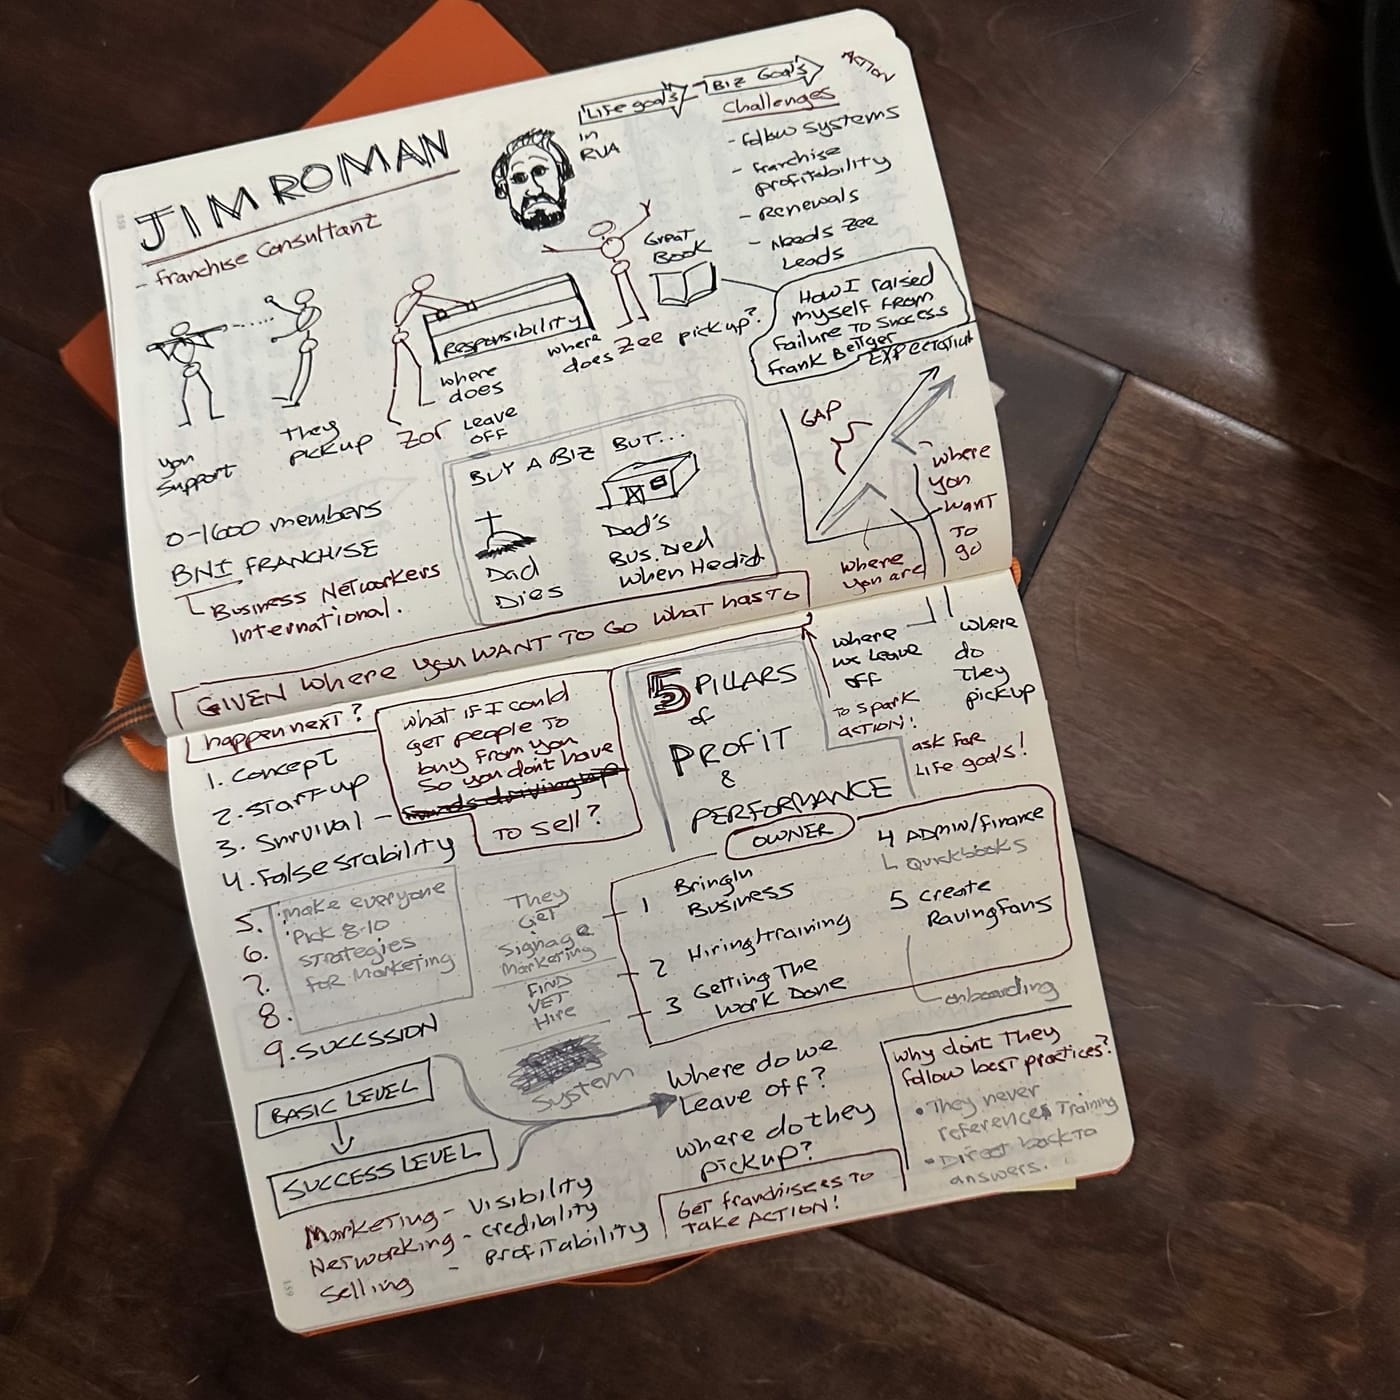 JIM ROMAN
- franchise Consultant
Life goal's
Biz Goal's
ACTION
in
RVA
Challenges
- follow systems
- franchise
profitability
- Renewals
- Needs Zee
Leads
Great
Book
How I raised
myself from
failure To Success
Frank Bettger
you
Support
They
pickup
Zor
Responsibility
where
does
Leave
OFF
where
does Zee pickup?
EXPECTATION
GAP
where
you
want
To
go
where
you are
0-1600 members
BNI FRANCHISE
Business Networkers
International.
BUY A BIZ BUT...
Dad
Dies
Dad's
Bus. Died
when He did.
GIVEN where you WANT TO GO what has TO
happen next?
where
we Leave
OFF
where
do
they
pickup
To spark
ACTION!
ask for
Life goals!
1. Concept
2. Start-up
3. Survival -
4. False Stability
5.
6.
7.
8.
9. SUCCSSION
make everyone
Pick 8-10
strategies
for Marketing
what IF I could
get people To
buy from you
So you don't have
TO SELL?
5 PILLARS
of
PROFIT
&
PERFORMANCE
OWNER
1 Bring In
Business
2 Hiring/Training
3 Getting The
Work Done
4 Admin/finance
Quickbooks
5 Create
Raving fans
onboarding
They
GET
Signage
Marketing
FIND
VET
Hire
System
BASIC LEVEL
SUCCESS LEVEL
Where do we
Leave off?
where do they
pickup?
Why don't They
follow best practices?
• They never
references Training
• Direct back To
answers.
Marketing - Visibility
Networking - credibility
Selling - profitability
Get franchisees to
take ACTION!
159